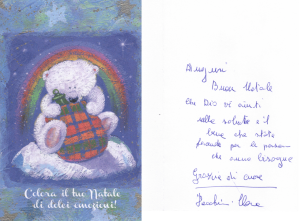 Colora il tuo Natale
di dolci emozioni!
Auguri
Buon Natale
che Dio vi aiuti
nella salute e il
bene che state
facendo per le persone
che anno bisogno
Grazie di cuore